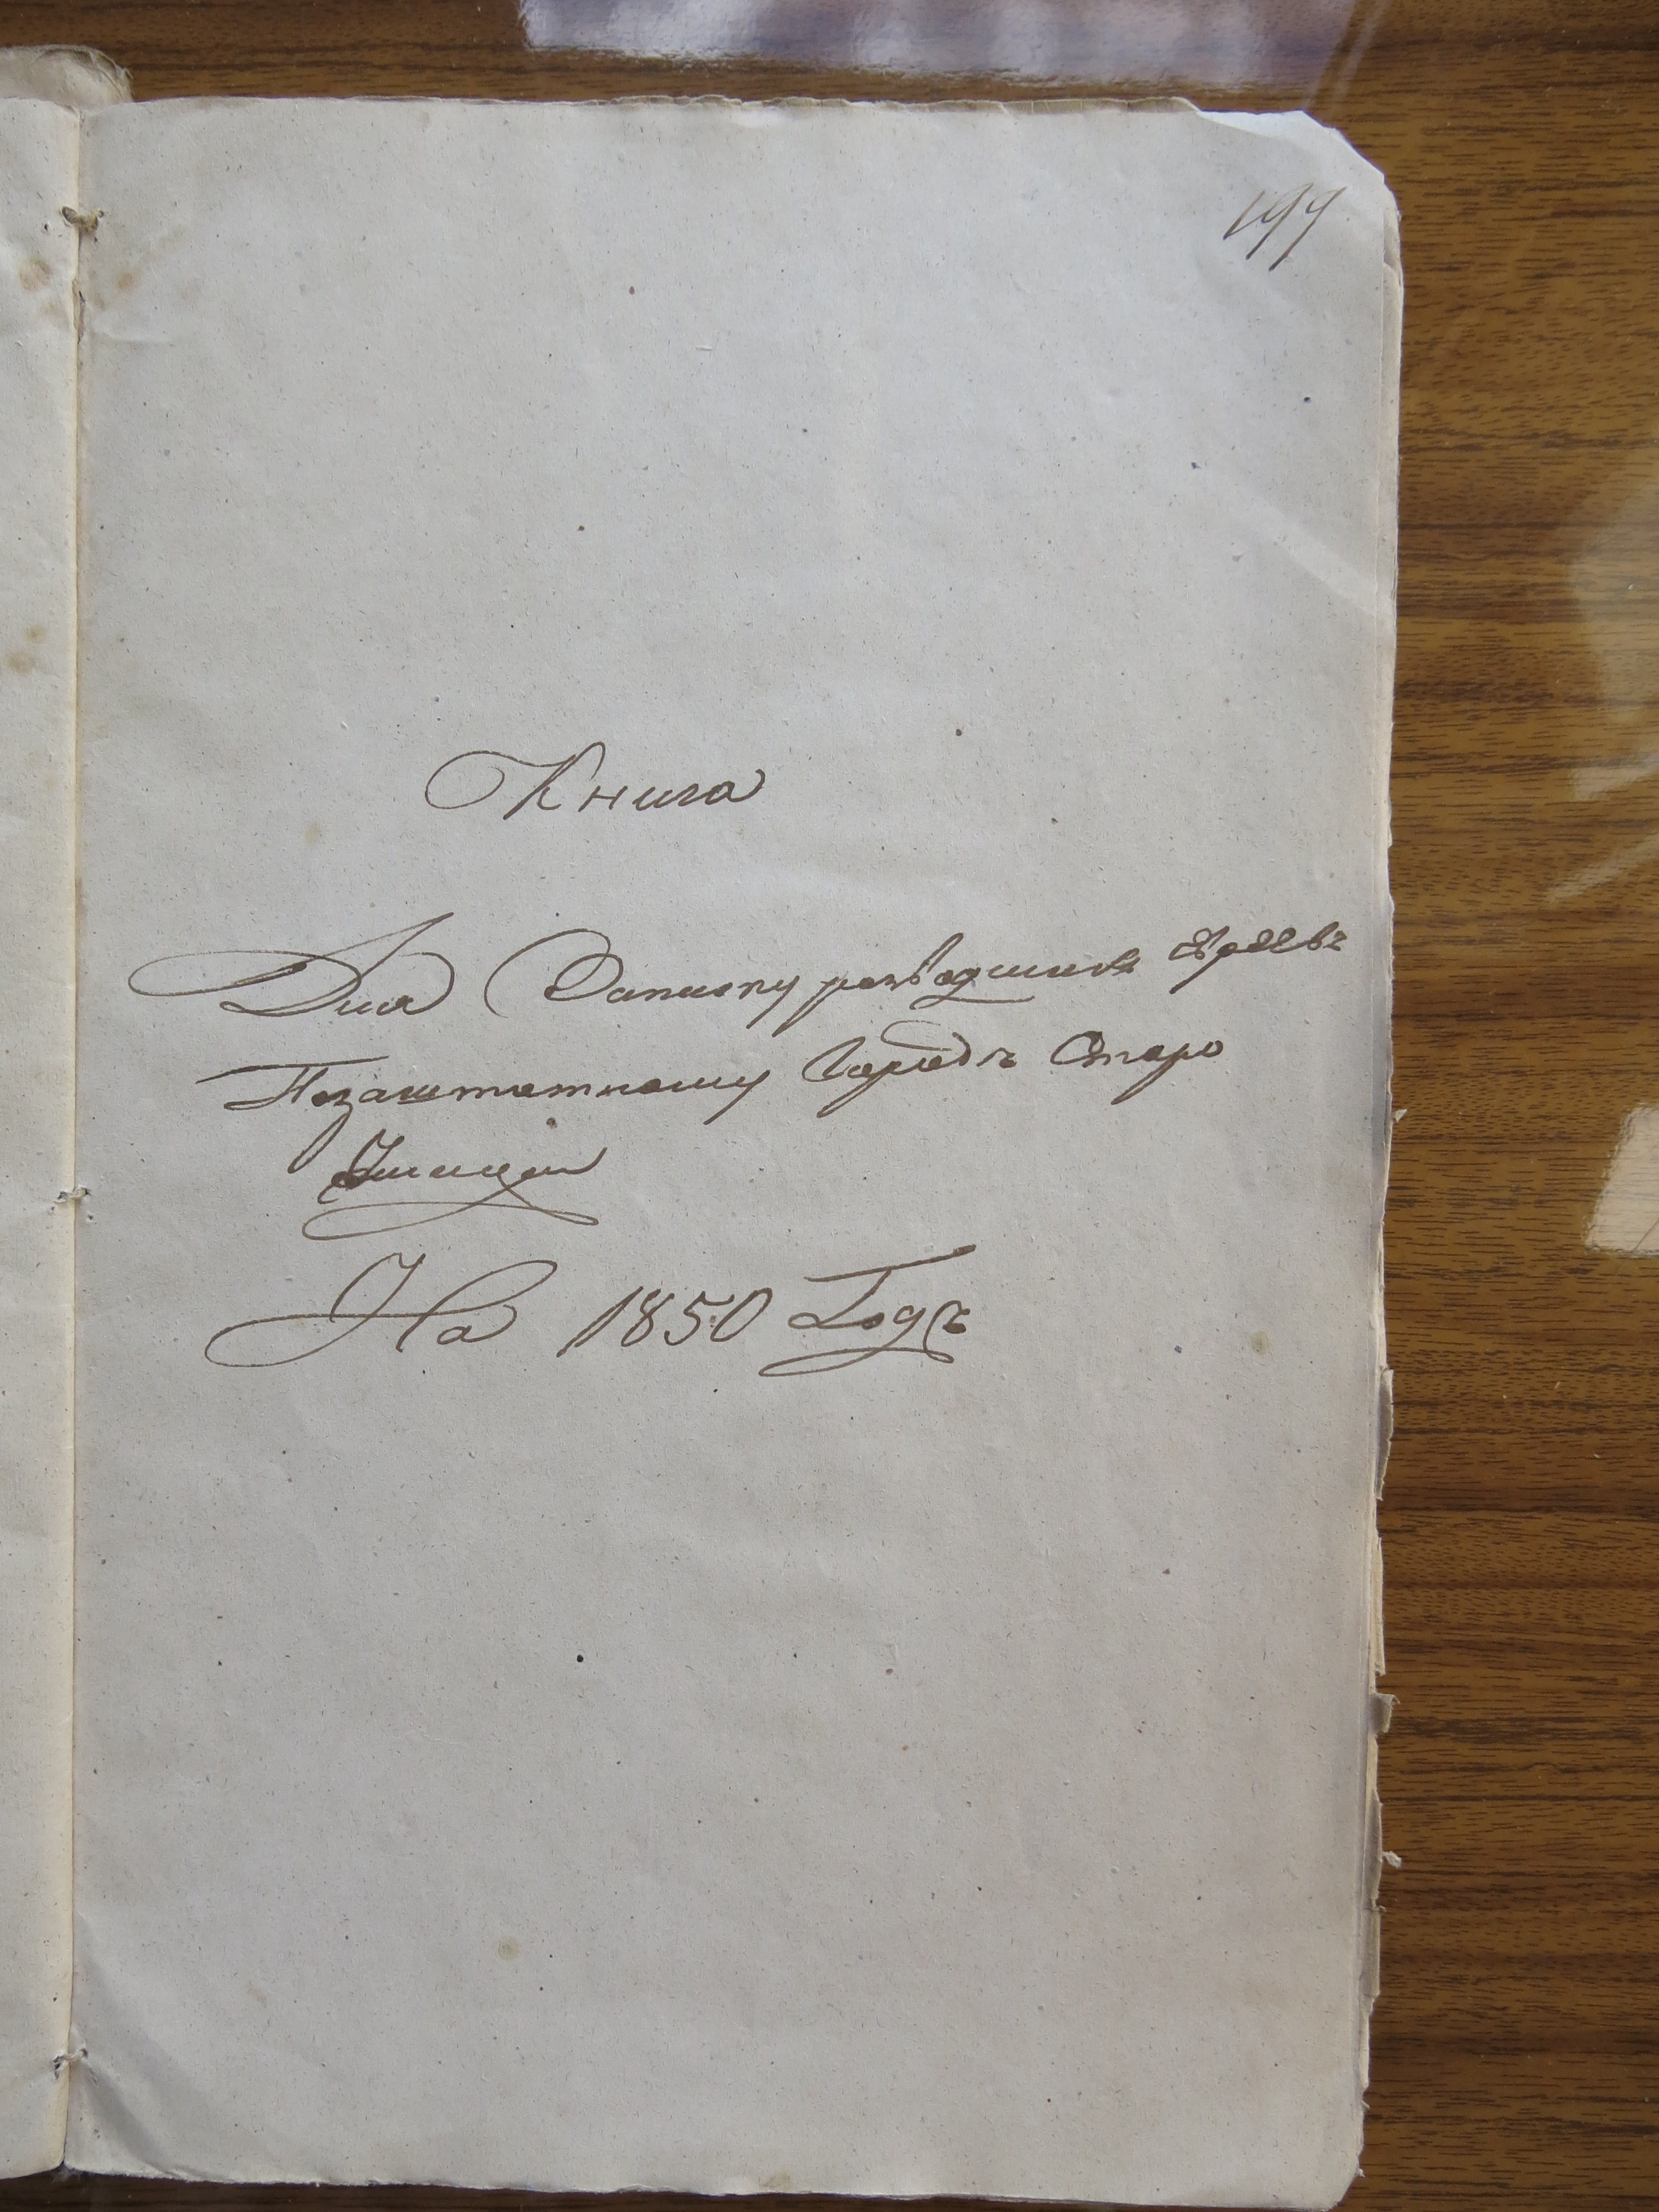 199
Книга
Для Записку розводшихъ Евреевъ
Позаштатному Городъ Старо
Ушицы
На 1850 Годъ